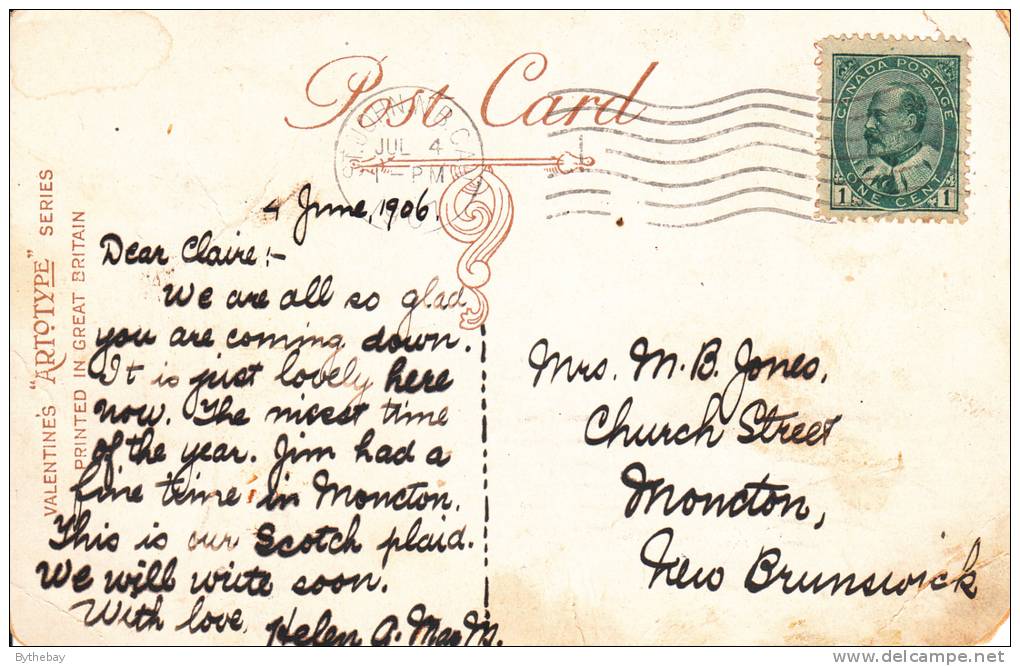 Post Card
ST. JOHN, N.B. CAN
JUL 4
1-PM
CANADA POSTAGE
1 ONE CENT 1
VALENTINE'S "ARTOTYPE" SERIES
PRINTED IN GREAT BRITAIN
4 June, 1906.
Dear Claire:-
We are all so glad
you are coming down.
It is just lovely here
now. The nicest time
of the year. Jim had a
fine time in Moncton.
This is our Scotch plaid.
We will write soon.
With love,
Helen G. Mac M.
Mrs. M. B. Jones,
Church Street
Moncton,
New Brunswick
Bythebay
delcampe.net